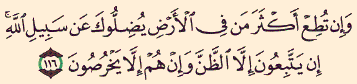 وَإِن تُطِعْ أَكْثَرَ مَن فِى ٱلْأَرْضِ يُضِلُّوكَ عَن سَبِيلِ ٱللَّهِ ۚ
إِن يَتَّبِعُونَ إِلَّا ٱلظَّنَّ وَإِنْ هُمْ إِلَّا يَخْرُصُونَ ١١٦